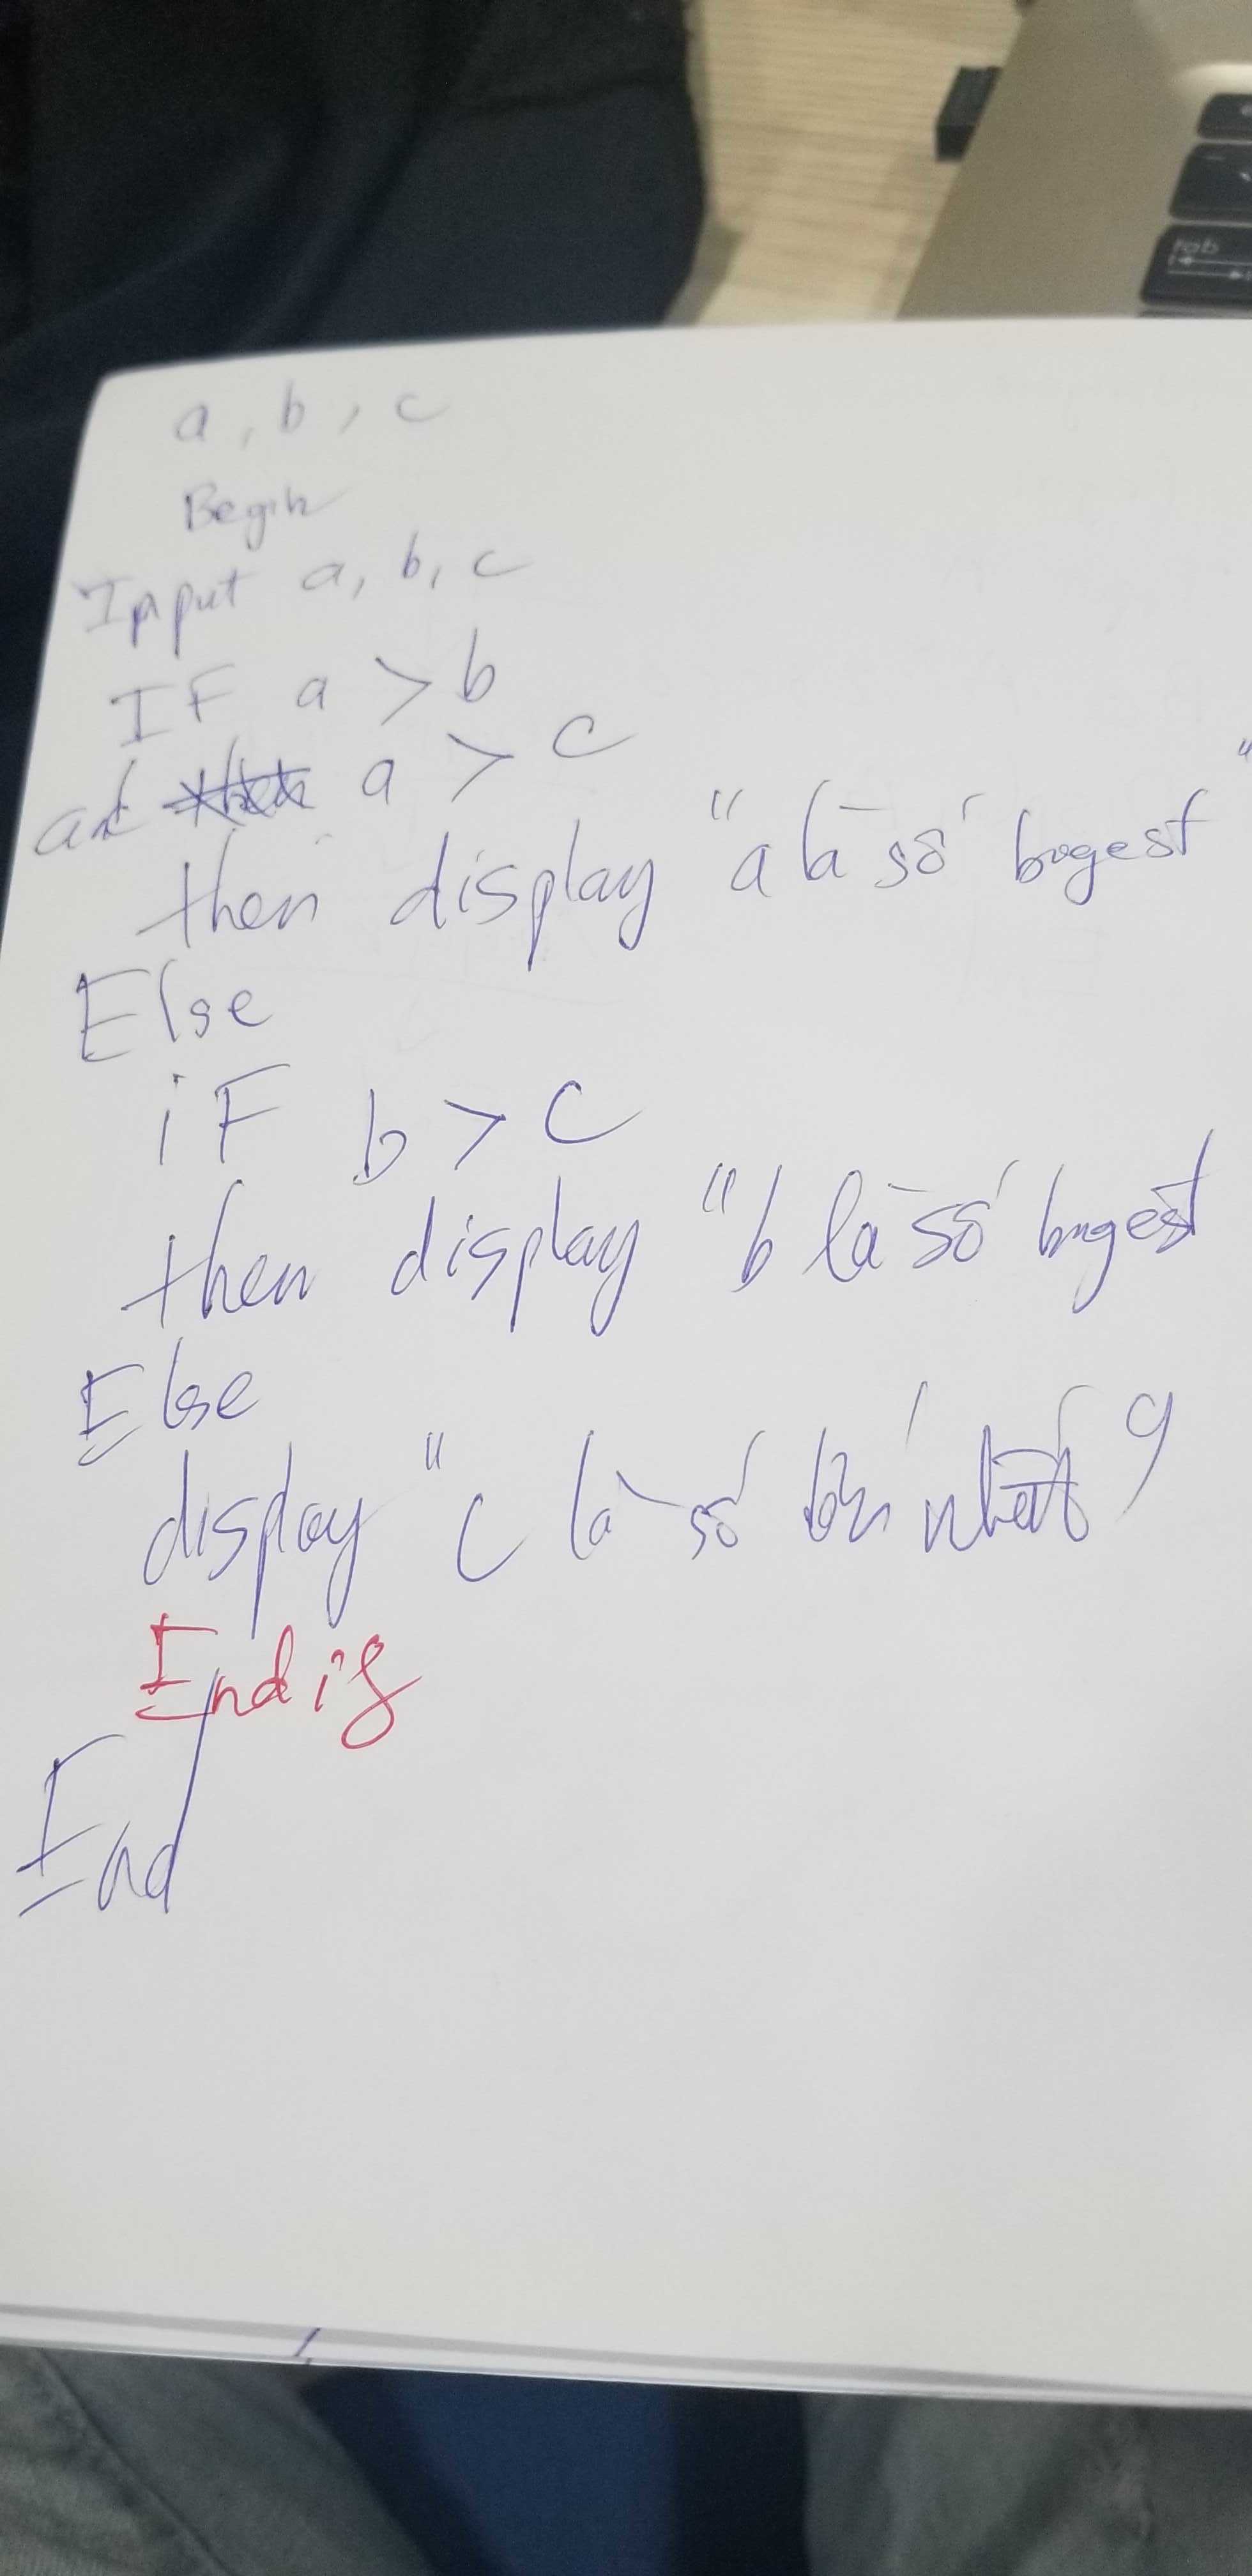 tab
a, b, c
Begin
Input a, b, c
IF a > b
and a > c
then display "a là số bigest"
Else
iF b > c
then display "b là số bigest
Else
display "c là số lớn nhất"
End if
End